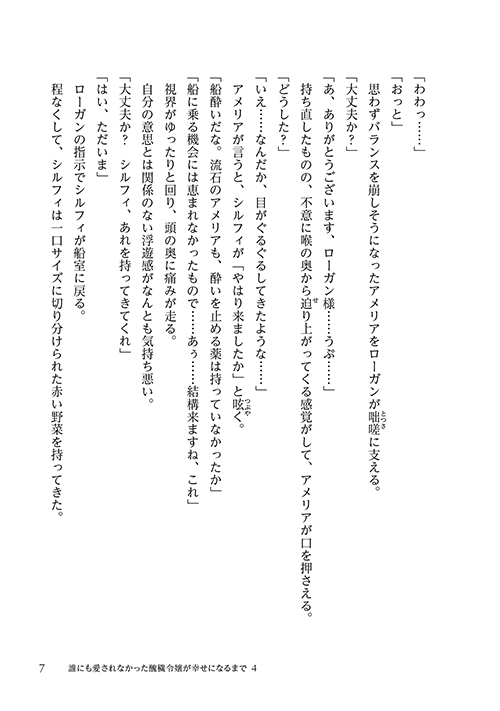 「わわっ……」
「おっと」
思わずバランスを崩しそうになったアメリアをローガンが咄嗟に支える。
「大丈夫か？」
「あ、ありがとうございます、ローガン様……うぷ……」
持ち直したものの、不意に喉の奥から迫り上がってくる感覚がして、アメリアが口を押さえる。
「どうした？」
「いえ……なんだか、目がぐるぐるしてきたような……」
アメリアが言うと、シルフィが「やはり来ましたか」と呟く。
「船酔いだな。流石のアメリアも、酔いを止める薬は持っていなかったか」
「船に乗る機会には恵まれなかったもので……あぅ……結構来ますね、これ」
視界がゆったりと回り、頭の奥に痛みが走る。
自分の意思とは関係のない浮遊感がなんとも気持ち悪い。
「大丈夫か？　シルフィ、あれを持ってきてくれ」
「はい、ただいま」
ローガンの指示でシルフィが船室に戻る。
程なくして、シルフィは一口サイズに切り分けられた赤い野菜を持ってきた。
7　誰にも愛されなかった醜穢令嬢が幸せになるまで 4